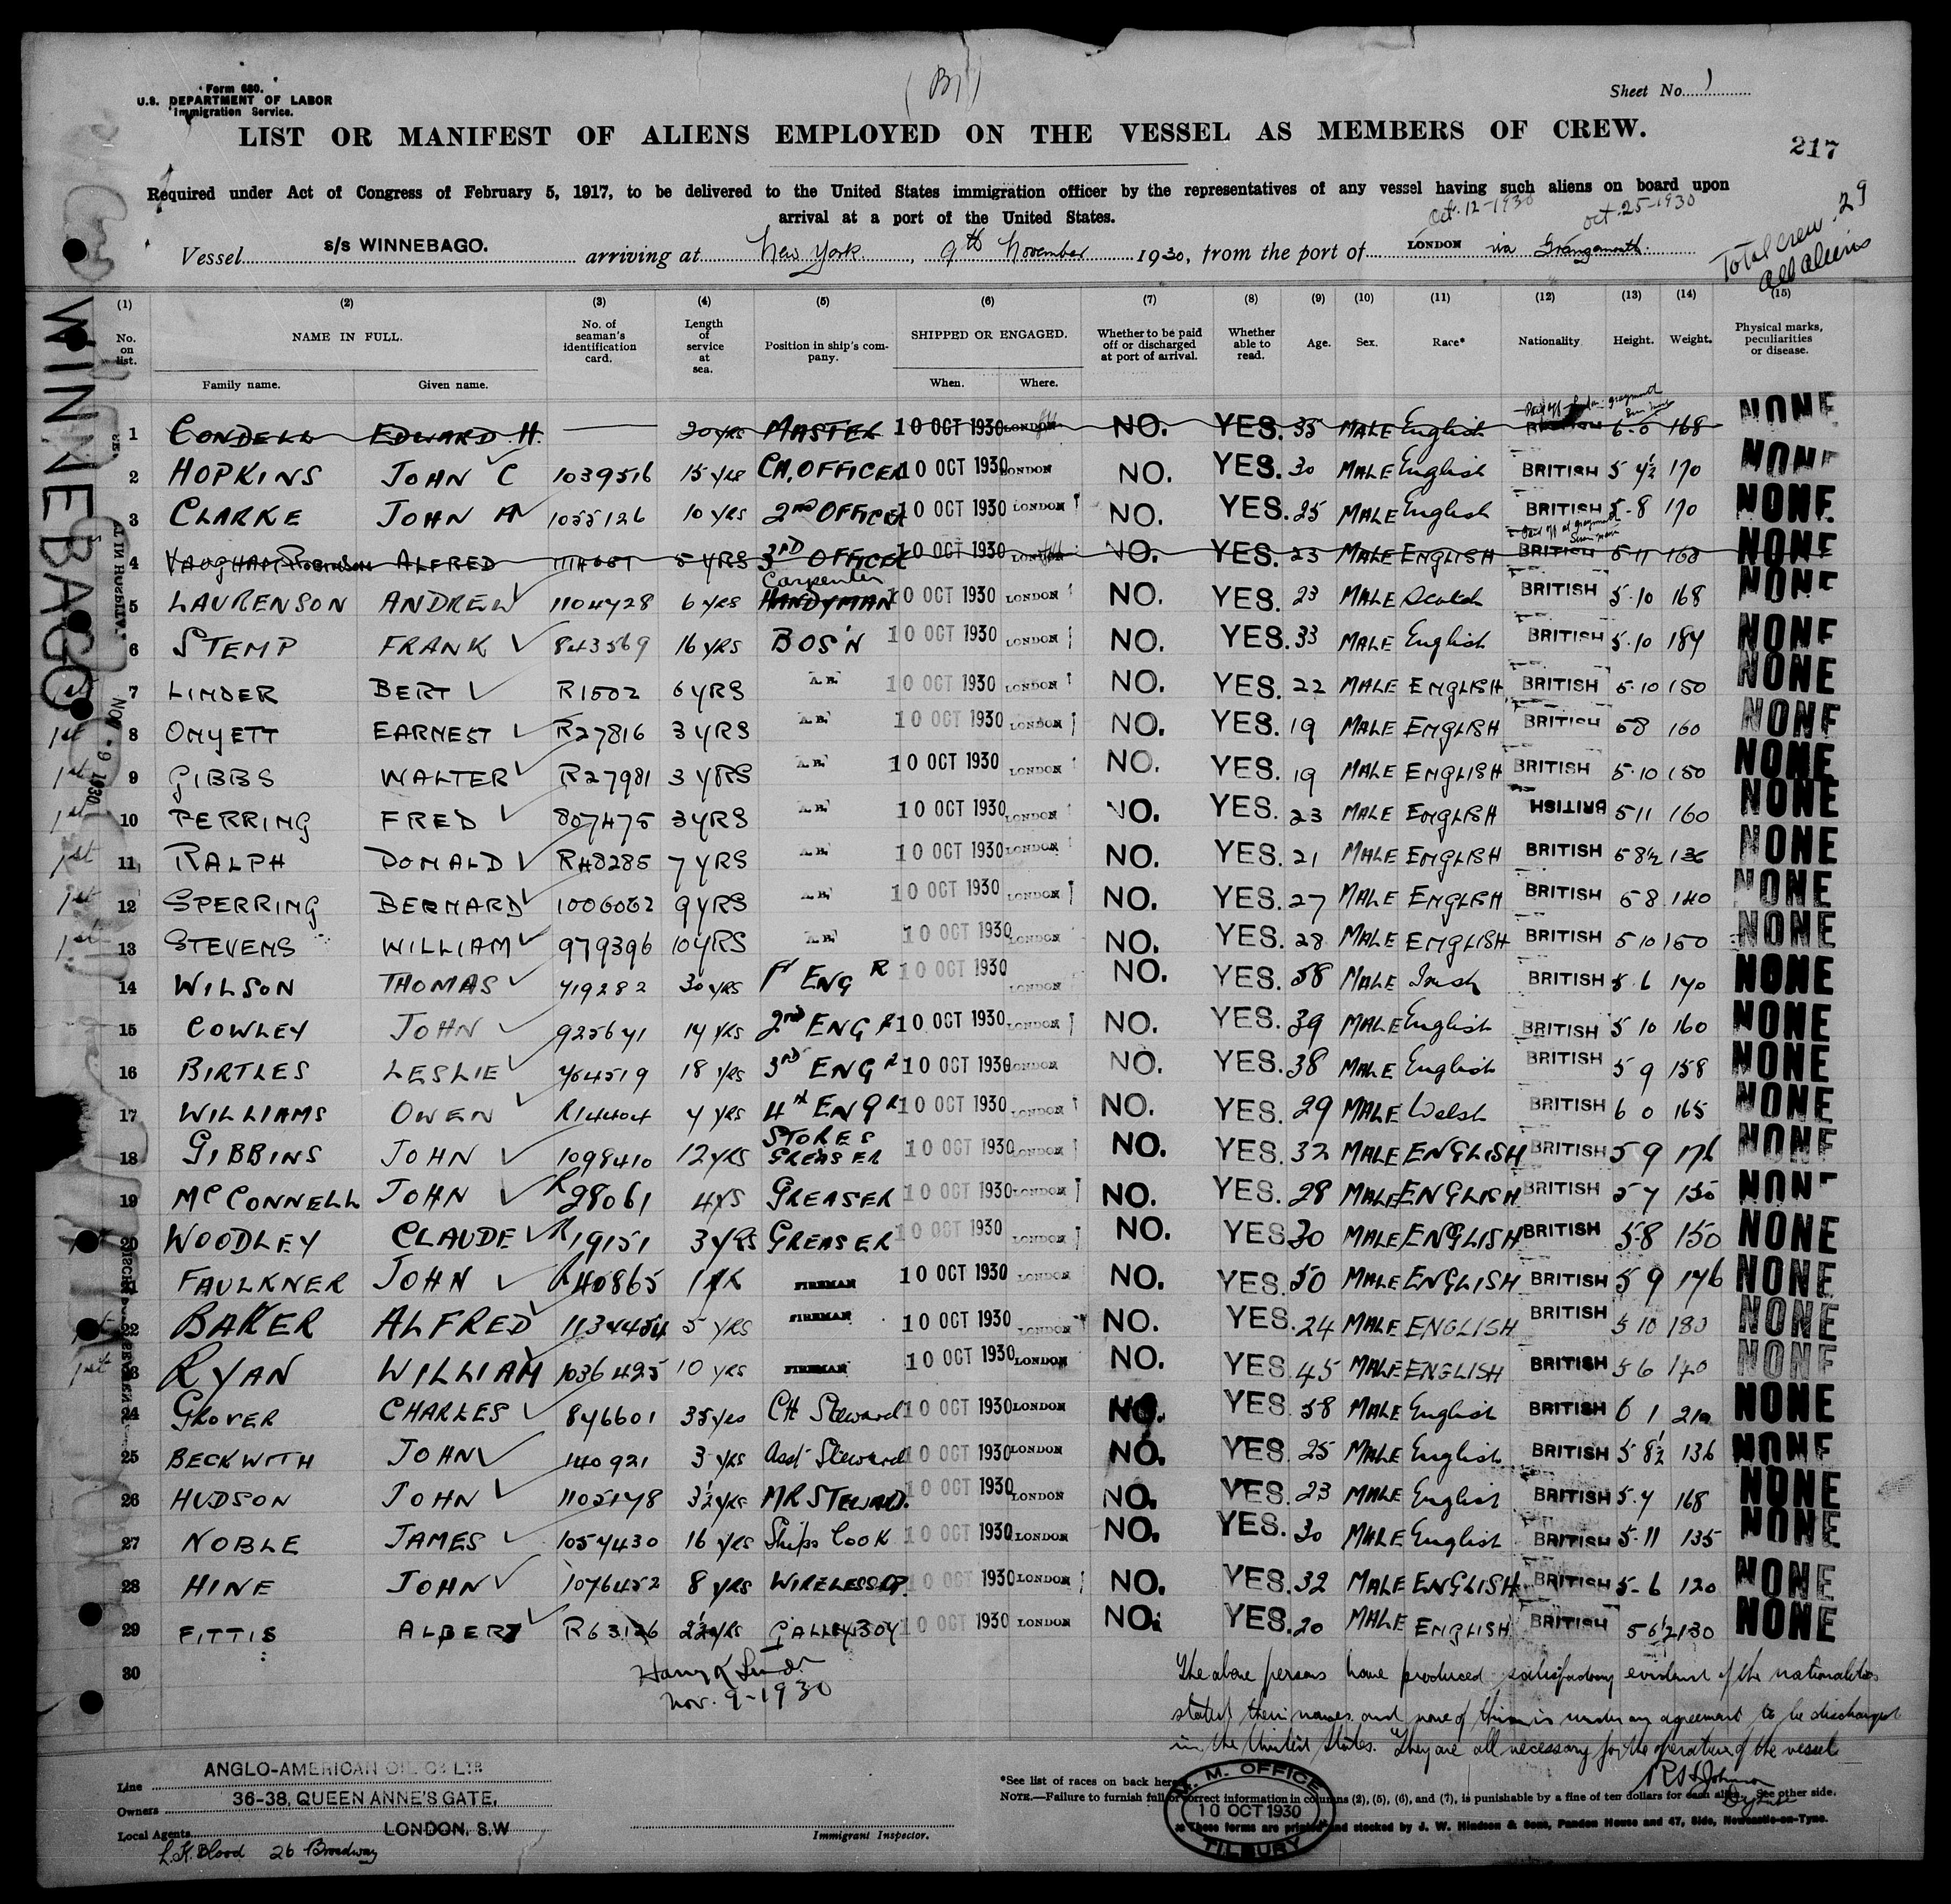 Form 680.
U.S. DEPARTMENT OF LABOR
Immigration Service.
Sheet No. 1
LIST OR MANIFEST OF ALIENS EMPLOYED ON THE VESSEL AS MEMBERS OF CREW.
217
Required under Act of Congress of February 5, 1917, to be delivered to the United States immigration officer by the representatives of any vessel having such aliens on board upon
arrival at a port of the United States.
Oct. 12-1930 Oct. 25-1930
Total crew 29
all aliens
Vessel s/s WINNEBAGO. arriving at New York, 9th November 1930, from the port of LONDON via Grangemouth.
WINNEBAGO
(1) (2) (3) (4) (5) (6) (7) (8) (9) (10) (11) (12) (13) (14) (15)
No. on list. NAME IN FULL. No. of seaman's identification card. Length of service at sea. Position in ship's company. SHIPPED OR ENGAGED. Whether to be paid off or discharged at port of arrival. Whether able to read. Age. Sex. Race* Nationality. Height. Weight. Physical marks, peculiarities or disease.
Family name. Given name. When. Where.
1 CONDELL EDWARD H. 20 yrs MASTER 10 OCT 1930 LONDON NO. YES. 35 MALE English 6-0 168 NONE
2 HOPKINS JOHN C 1039516 15 yrs CH. OFFICER 10 OCT 1930 LONDON NO. YES. 30 MALE English BRITISH 5 4½ 170 NONE
3 CLARKE JOHN A 1055126 10 yrs 2nd OFFICER 10 OCT 1930 LONDON NO. YES. 25 MALE English BRITISH 5-8 170 NONE
4 VAUGHAN Robinson ALFRED 5 YRS 3RD OFFICER 10 OCT 1930 LONDON NO. YES. 23 MALE ENGLISH BRITISH 5-11 168 NONE
Carpenter
5 LAURENSON ANDREW 1104728 6 yrs HANDYMAN 10 OCT 1930 LONDON NO. YES. 23 MALE Scotch BRITISH 5-10 168 NONE
6 STEMP FRANK 843569 16 YRS BOS'N 10 OCT 1930 LONDON NO. YES. 33 MALE English BRITISH 5.10 184 NONE
7 LINDER BERT R1502 6 YRS A.B. 10 OCT 1930 LONDON NO. YES. 22 MALE ENGLISH BRITISH 5.10 150 NONE
1st 8 ONYETT EARNEST R27816 3 YRS A.B. 10 OCT 1930 LONDON NO. YES. 19 MALE ENGLISH BRITISH 58 160 NONE
1st 9 GIBBS WALTER R27981 3 YRS A.B. 10 OCT 1930 LONDON NO. YES. 19 MALE ENGLISH BRITISH 5.10 150 NONE
1st 10 PERRING FRED 807475 3 YRS A.B. 10 OCT 1930 LONDON NO. YES. 23 MALE ENGLISH BRITISH 511 160 NONE
1st 11 RALPH DONALD R48285 7 YRS A.B. 10 OCT 1930 LONDON NO. YES. 21 MALE ENGLISH BRITISH 58½ 136 NONE
1st 12 SPERRING BERNARD 1006062 9 YRS A.B. 10 OCT 1930 LONDON NO. YES. 27 MALE ENGLISH BRITISH 58 140 NONE
1st 13 STEVENS WILLIAM 979396 10 YRS A.B. 10 OCT 1930 LONDON NO. YES. 28 MALE ENGLISH BRITISH 5 10 150 NONE
14 WILSON THOMAS 719282 30 YRS 1st ENGR 10 OCT 1930 LONDON NO. YES. 58 MALE Irish BRITISH 5.6 140 NONE
15 COWLEY JOHN 925641 14 yrs 2nd ENGR 10 OCT 1930 LONDON NO. YES. 39 MALE English BRITISH 5 10 160 NONE
16 BIRTLES LESLIE 764519 18 yrs 3RD ENGR 10 OCT 1930 LONDON NO. YES. 38 MALE English BRITISH 5 9 158 NONE
17 WILLIAMS OWEN R14404 4 yrs 4th ENGR 10 OCT 1930 LONDON NO. YES. 29 MALE Welsh BRITISH 6 0 165 NONE
18 GIBBINS JOHN 1098410 12 YRS STORES GREASER 10 OCT 1930 LONDON NO. YES. 32 MALE ENGLISH BRITISH 5 9 176 NONE
19 McCONNELL JOHN R28061 4 YRS GREASER 10 OCT 1930 LONDON NO. YES. 28 MALE ENGLISH BRITISH 5 7 150 NONE
20 WOODLEY CLAUDE R19151 3 YRS GREASER 10 OCT 1930 LONDON NO. YES. 30 MALE ENGLISH BRITISH 5-8 150 NONE
21 FAULKNER JOHN R40865 1 YR FIREMAN 10 OCT 1930 LONDON NO. YES. 50 MALE ENGLISH BRITISH 5 9 146 NONE
22 BAKER ALFRED 1134454 5 YRS FIREMAN 10 OCT 1930 LONDON NO. YES. 24 MALE ENGLISH BRITISH 5 10 180 NONE
1st 23 RYAN WILLIAM 1036425 10 YRS FIREMAN 10 OCT 1930 LONDON NO. YES. 45 MALE ENGLISH BRITISH 5 6 140 NONE
24 GROVER CHARLES 846601 35 yrs CH Steward 10 OCT 1930 LONDON NO. YES. 58 MALE English BRITISH 6 1 210 NONE
25 BECKWITH JOHN 140921 3 YRS Asst Steward 10 OCT 1930 LONDON NO. YES. 25 MALE English BRITISH 5 8½ 136 NONE
26 HUDSON JOHN 1105178 3½ yrs MR STEWRD. 10 OCT 1930 LONDON NO. YES. 23 MALE English BRITISH 5.7 168 NONE
27 NOBLE JAMES 1057430 16 YRS Ships Cook 10 OCT 1930 LONDON NO. YES. 30 MALE English BRITISH 5-11 135 NONE
28 HINE JOHN 1076452 8 YRS WIRELESS OP. 10 OCT 1930 LONDON NO. YES. 32 MALE ENGLISH BRITISH 5-6 120 NONE
29 FITTIS ALBERT R63126 2½ YRS GALLEYBOY 10 OCT 1930 LONDON NO. YES. 20 MALE ENGLISH BRITISH 5 6½ 130 NONE
30
Nov. 9-1930
The above persons have produced satisfactory evidence of the nationalities
stated their names and none of them is under an agreement to be discharged
in the United States. They are all necessary for the operation of the vessel
Line ANGLO-AMERICAN OIL Co LTD
Owners 36-38, QUEEN ANNE'S GATE,
Local Agents LONDON, S.W
L.K. Blood 26 Broadway
Immigrant Inspector.
*See list of races on back hereof.
NOTE.—Failure to furnish full or correct information in columns (2), (5), (6), and (7), is punishable by a fine of ten dollars for each alien. See other side.
These forms are printed and stocked by J. W. Hindson & Sons, Pandon House and 47, Side, Newcastle-on-Tyne.
M. M. OFFICE
10 OCT 1930
TILBURY